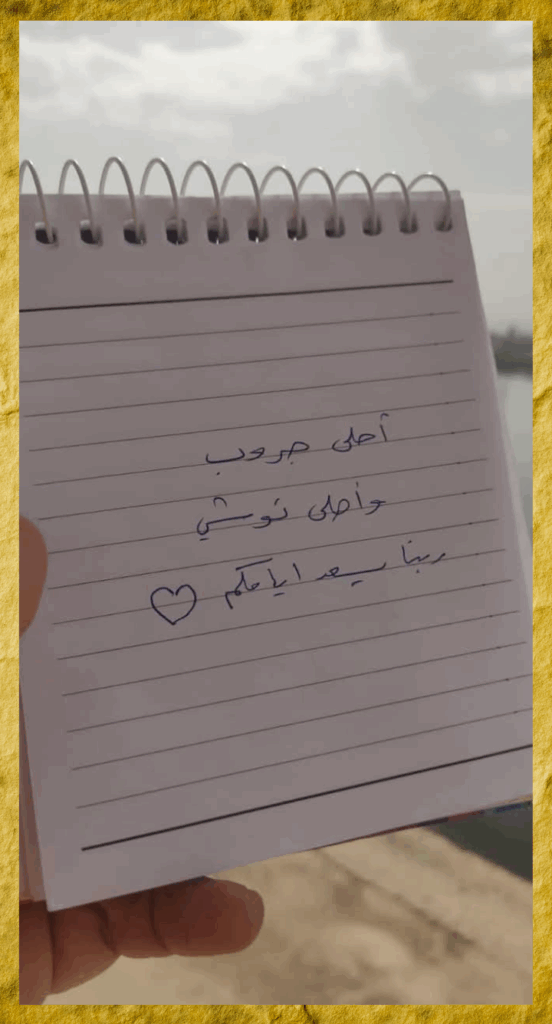 أحلى جروب
وأحلى توشي
ربنا يسعد ايامكم